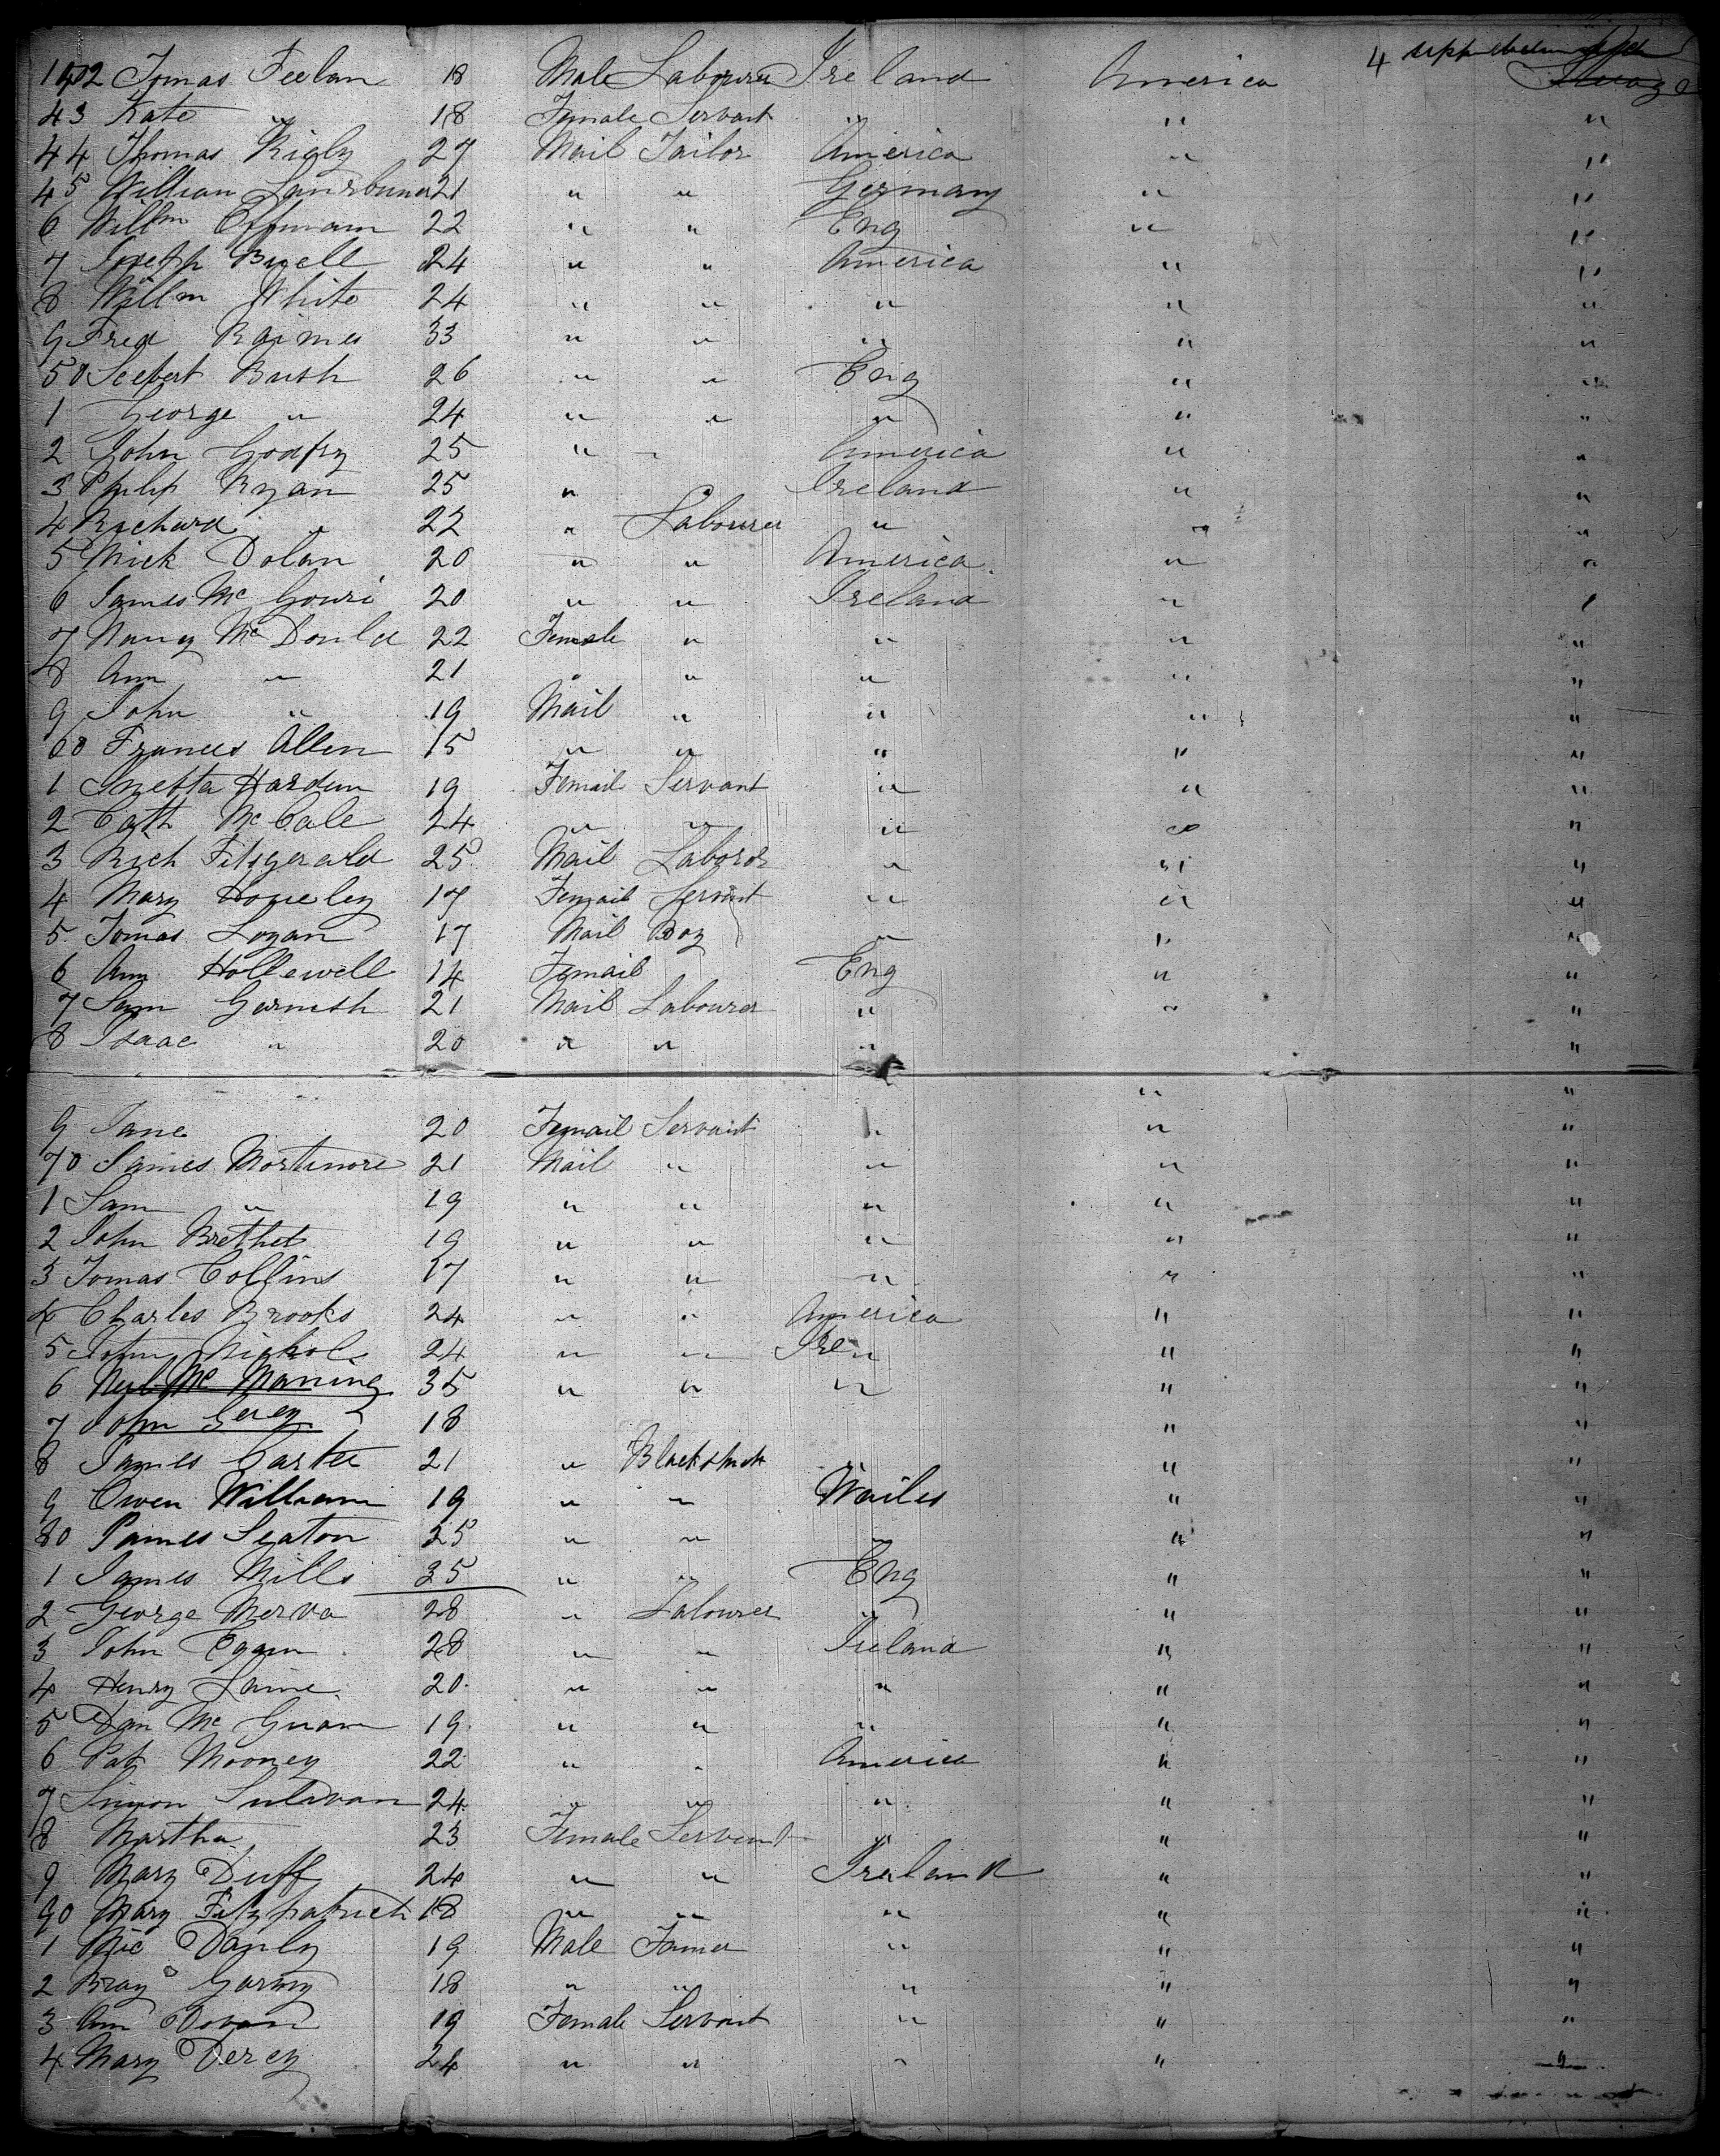 1402 Tomas Feelan 18 Male Labourer Ireland America 4
43 Kate " 18 Female Servant " " "
44 Thomas Rigby 27 Mail Tailor America " "
45 William 21 " " Germany " "
6 Willm Offmam 22 " " Eng " "
7 Joseph Buell 24 " " America " "
8 Willm White 24 " " " " "
9 Fred Raimes 33 " " " " "
50 Seebert Bush 26 " " Eng " "
1 George " 24 " " " " "
2 John Godfry 25 " " America " "
3 Philip Ryan 25 " " Ireland " "
4 Richard " 22 " Labourer " " "
5 Mick Dolan 20 " " America " "
6 James Mc Gouri 20 " " Ireland " "
7 Nancy Mc Donld 22 Female " " " "
8 Ann " 21 " " " " "
9 John " 19 Mail " " " "
60 Frances Allen 15 " " " " "
1 Hardem 19 Femail Servant " " "
2 Cath Mc Cale 24 " " " " "
3 Rich Fitsgerald 25 Mail Laboror " " "
4 Mary Honeley 17 Femail Servant " " "
5 Tomas Logan 17 Mail Boy " " "
6 Ann Hollewell 14 Femail Eng " "
7 Sam Garnish 21 Mail Labourer " " "
8 Isaac " 20 " " " " "
9 Jane 20 Femail Servant " " "
70 James Mortimore 21 Mail " " " "
1 Sam " 19 " " " " "
2 John Brethet 19 " " " " "
3 Tomas Collins 17 " " " " "
4 Charles Brooks 24 " " America " "
5 John Nichols 24 " " Ire " " "
6 Mc Maning 35 " " " " "
7 John Gerey 18 " "
8 James Carter 21 " Blacksmith " "
9 Owen William 19 " " Wailes " "
80 James Seaton 25 " " " "
1 James Mills 35 " " Eng " "
2 George Merva 28 " Labourer " " "
3 John Egan 28 " " Ireland " "
4 Henry Laine 20 " " " " "
5 Dan Mc Guam 19 " " " " "
6 Pat Mooney 22 " " America " "
7 Simon Sulavan 24 " " " " "
8 Martha 23 Female Servent " " "
9 Mary Duff 24 " " Ireland " "
90 Mary Fitzpatrick 18 " " " " "
1 Mic Danly 19 Male Famer " " "
2 18 " " " " "
3 Ann Dovan 19 Female Servant " " "
4 Mary Derey 24 " " " " "